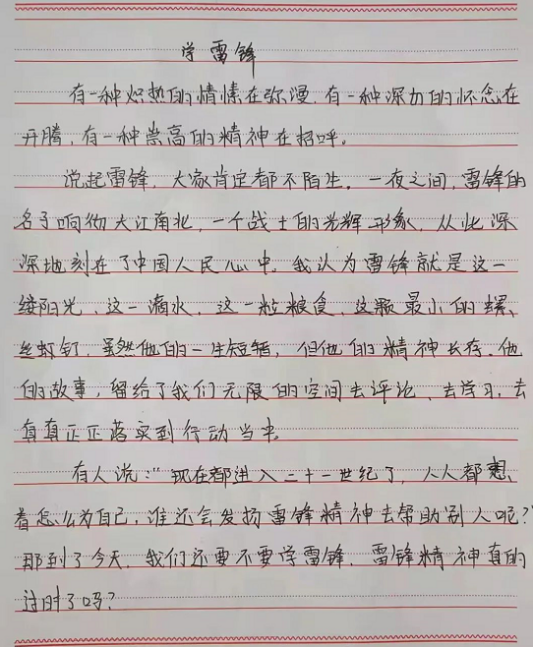 学雷锋
有一种炽热的情愫在弥漫,有一种深切的怀念在
升腾,有一种崇高的精神在招呼。
说起雷锋,大家肯定都不陌生。一夜之间,雷锋的
名子响彻大江南北,一个战士的光辉形象,从此深
深地刻在了中国人民心中。我认为雷锋就是这一
缕阳光、这一滴水、这一粒粮食、这颗最小的螺、
丝钉钉,虽然他的一生短暂,但他的精神长存。他
的故事,留给了我们无限的空间去评论、去学习,去
真真正正落实到行动当中。
有人说:“现在都进入二十一世纪了,人人都想、
着怎么为自己,谁还会发扬雷锋精神去帮助别人呢?”
那到了今天,我们还要不要学雷锋,雷锋精神真的
过时了吗?